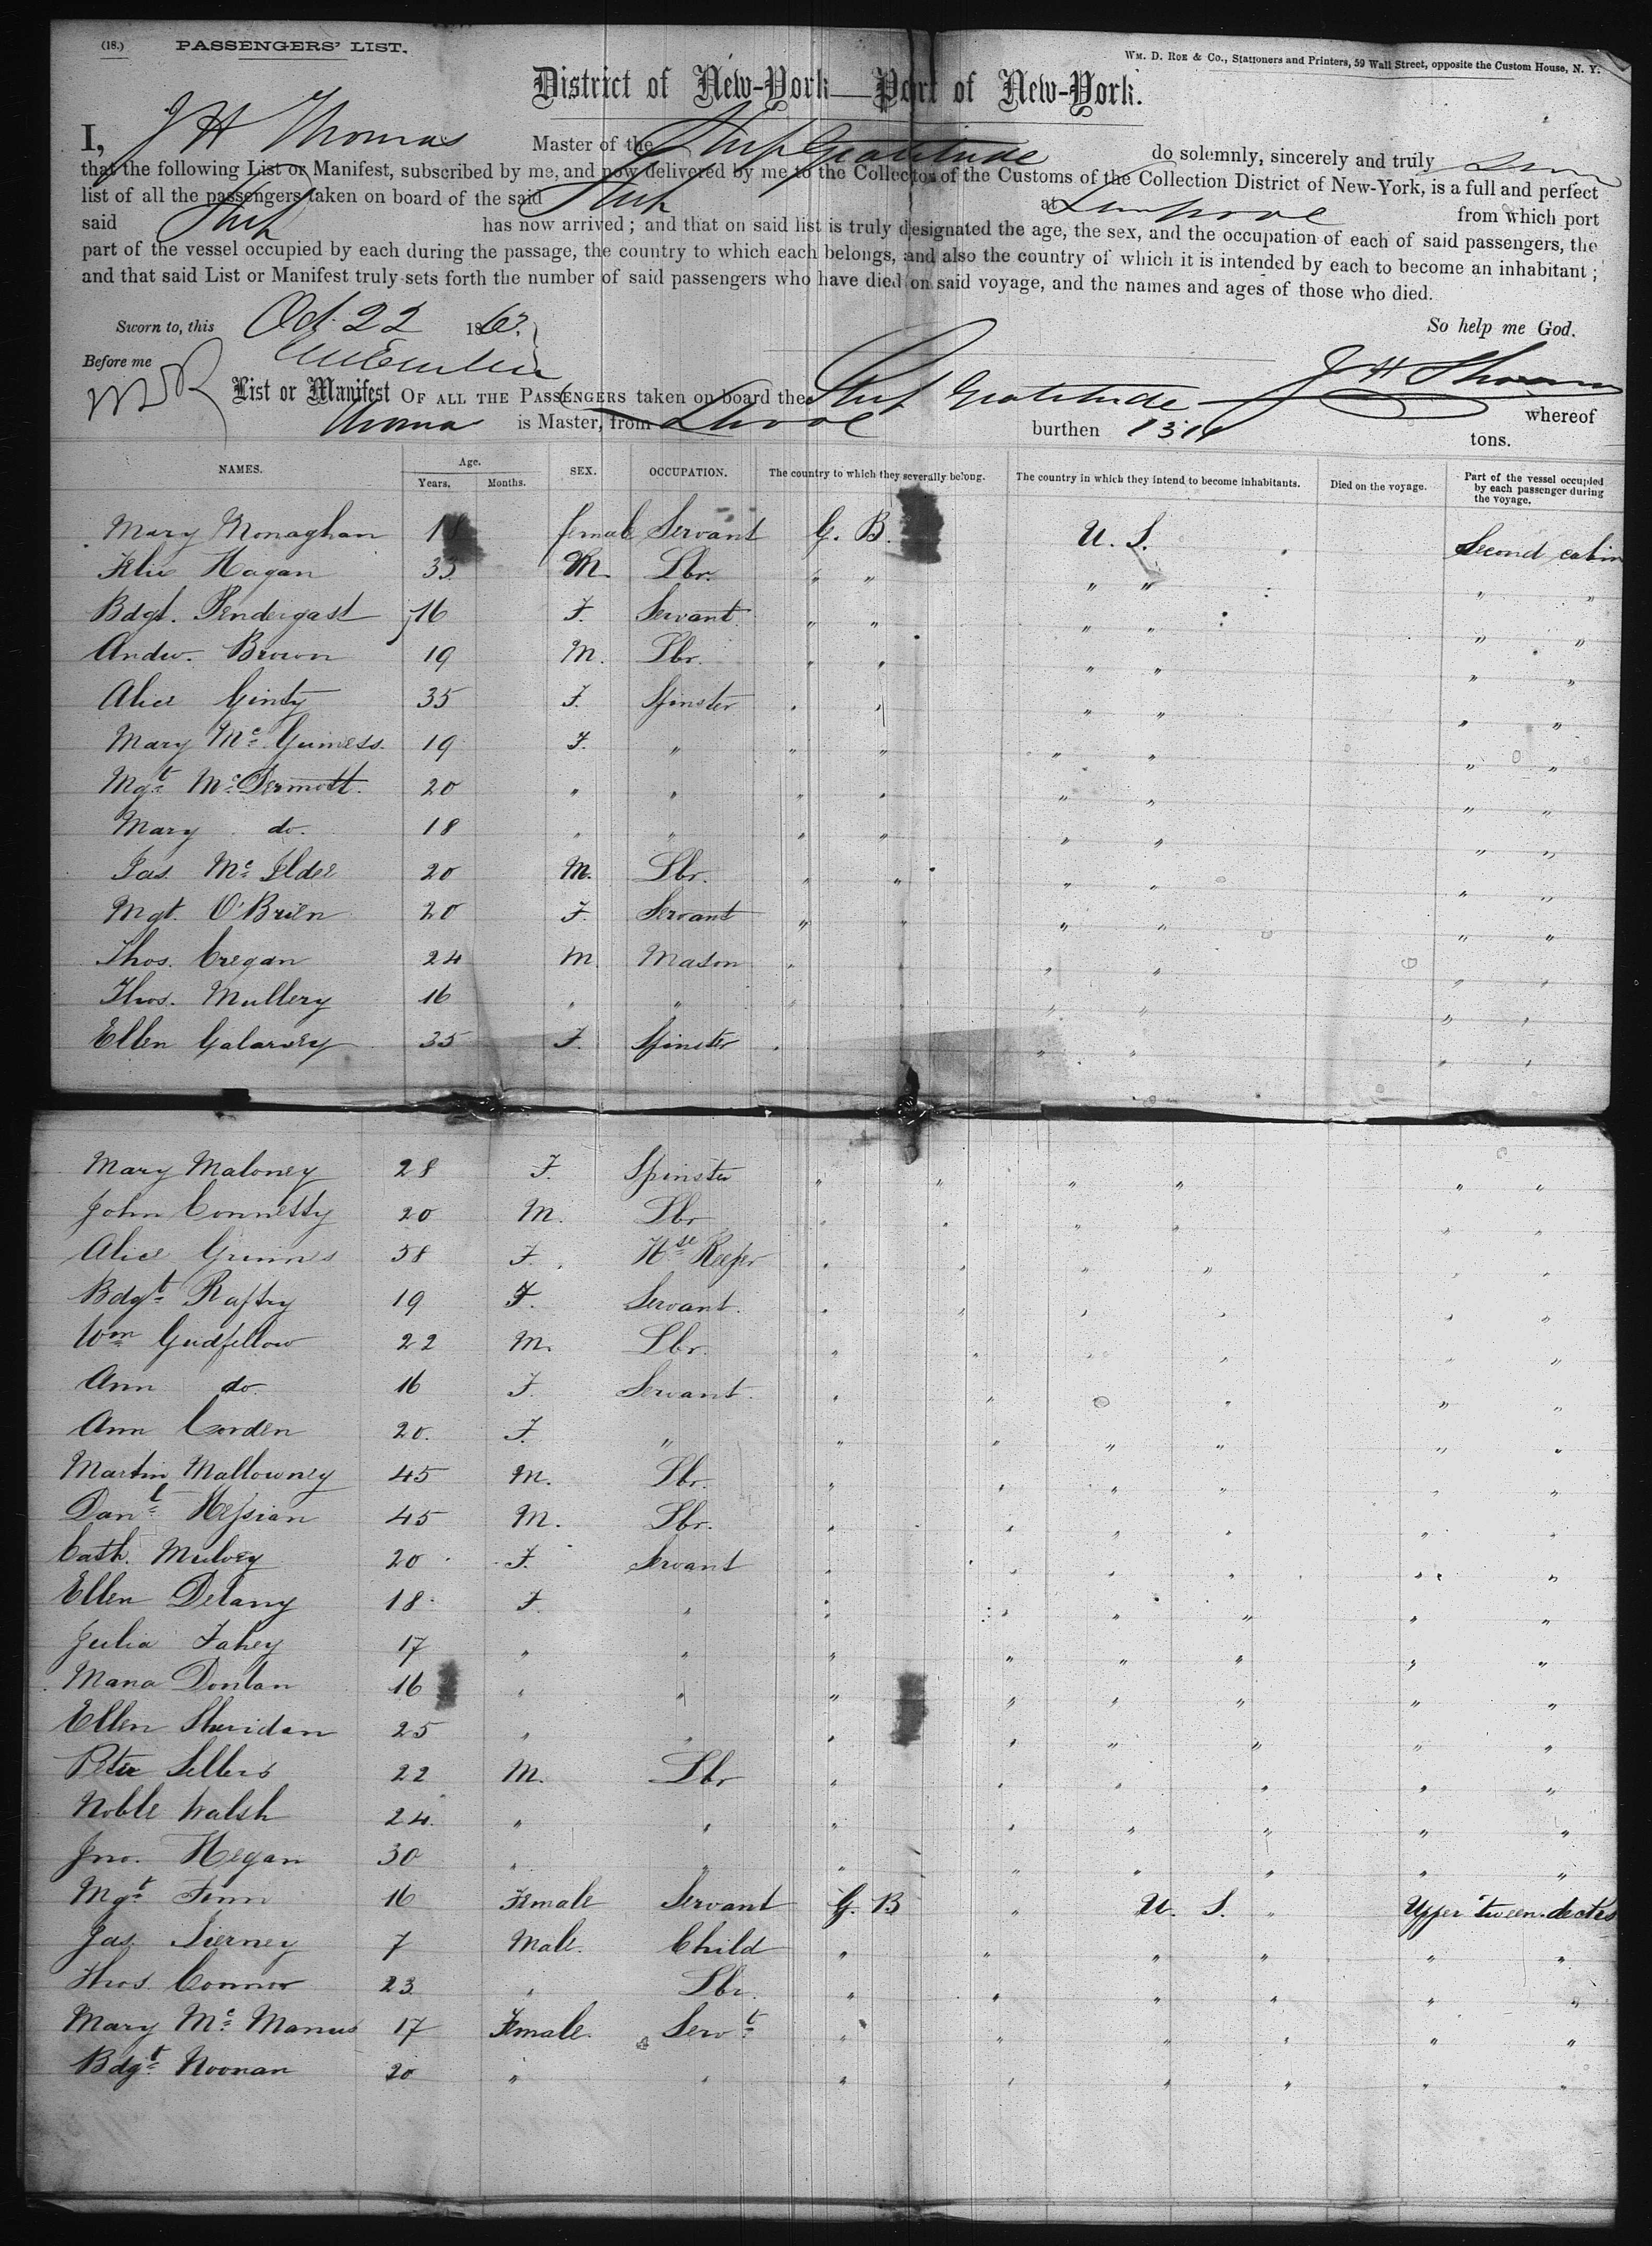 (18.) PASSENGERS' LIST.
WM. D. ROE & CO., Stationers and Printers, 59 Wall Street, opposite the Custom House, N. Y.
District of New-York—Port of New-York.
I, J H Thomas Master of the Ship Gratitude do solemnly, sincerely and truly
that the following List or Manifest, subscribed by me, and now delivered by me to the Collector of the Customs of the Collection District of New-York, is a full and perfect
list of all the passengers taken on board of the said Ship at Liverpool from which port
said Ship has now arrived; and that on said list is truly designated the age, the sex, and the occupation of each of said passengers, the
part of the vessel occupied by each during the passage, the country to which each belongs, and also the country of which it is intended by each to become an inhabitant;
and that said List or Manifest truly sets forth the number of said passengers who have died on said voyage, and the names and ages of those who died.
So help me God.
Sworn to, this Oct. 22 186
Before me
J H Thomas
List or Manifest OF ALL THE PASSENGERS taken on board the Ship Gratitude whereof
Thomas is Master, from Lpool burthen tons.
NAMES. Age. Years. Months. SEX. OCCUPATION. The country to which they severally belong. The country in which they intend to become inhabitants. Died on the voyage. Part of the vessel occupied by each passenger during the voyage.
Mary Monaghan 18 female Servant G. B. U. S. Second cabin
Hagan 33 M. Lbr. " " " " " "
Bdgt. Pendergast 16 F. Servant " " " " " "
Andw. Brown 19 M. Lbr. " " " " " "
Alice Ginty 35 F. Spinster " " " " " "
Mary Mc Guiness 19 F. " " " " " " "
Mgt Mc Dermott 20 " " " " " " " "
Mary do. 18 " " " " " " " "
Jas. Mc Elder 20 M. Lbr. " " " " " "
Mgt. O'Brien 20 F. Servant " " " " " "
Thos. Cregan 24 M Mason " " " " "
Thos. Mullery 16 " " " " " " "
Ellen Galarvey 35 F. Spinster " " " " "
Mary Maloney 28 F. Spinster " " " " " "
John Connetty 20 M. Lbr " " " " " "
Alice Guinnes 38 F. Hse Keeper " " " " " "
Bdgt Raftry 19 F. Servant. " " " " " "
Wm Gudfellow 22 M. Lbr. " " " " " "
Ann do. 16 F. Servant. " " " " "
Ann Corden 20. F. " " " " " " "
Martin Mallowney 45 M. Lbr. " " " " " "
Danl Hessian 45 M. Lbr. " " " " " "
Cath. Mulvey 20 F. Servant " " " " " "
Ellen Delany 18 F. " " " " " " "
Julia Fahey 17 " " " " " " " "
Maria Donlan 16 " " " " " " " "
Ellen Sheridan 25 " " " " " " " "
Peter Sellers 22 M. Lbr " " " " " "
Noble Walsh 24. " " " " " " " "
Jno. Hegan 30 " " " " " " " "
Mgt Fenn 16 Female Servant G. B " U. S. " Upper tween decks
Jas Tierney 7 Male. Child " " " " " "
Thos. Connor 23 " Lbr. " " " " " "
Mary Mc Manus 17 Female. Servt " " " " " "
Bdgt Noonan 20 " " " " " " " "